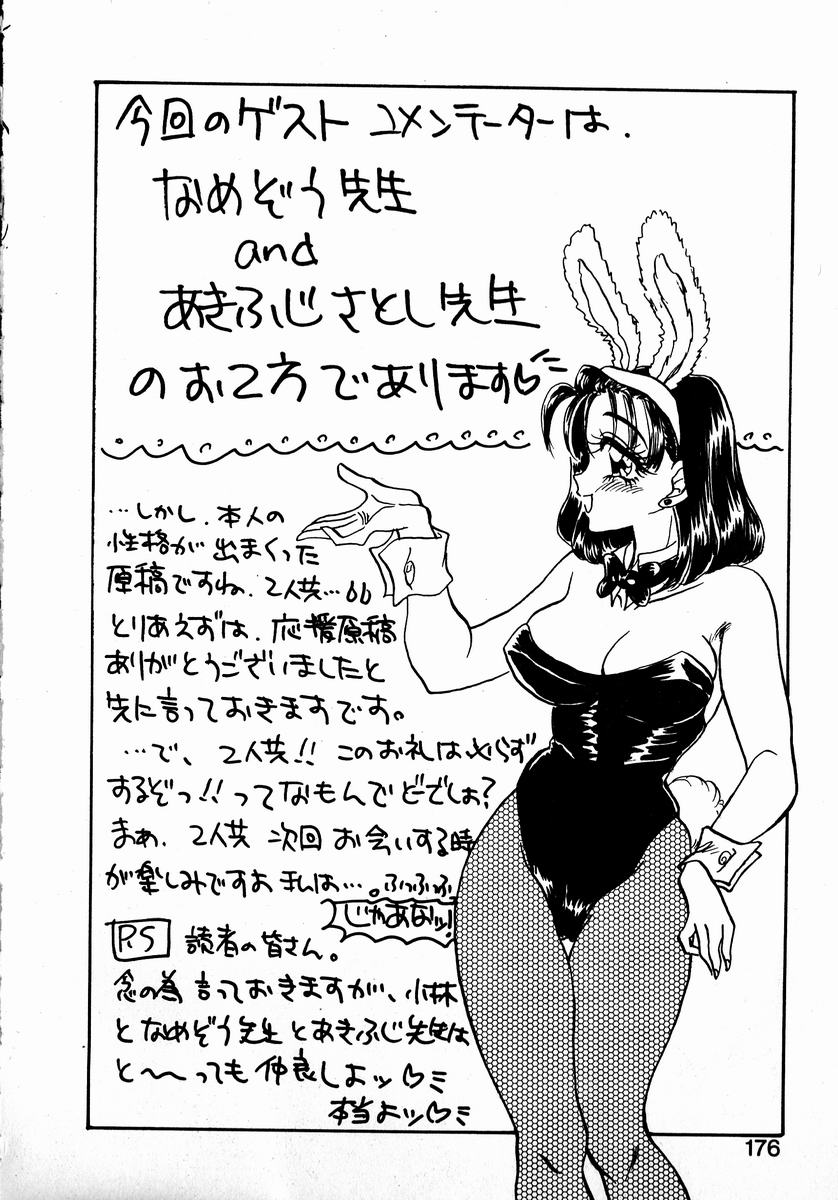 今回のゲスト コメンテーターは、
なめぞう先生
and
あきふじさとし先生
のお二方であります♡
…しかし、本人の
性格が出まくった
原稿ですね、2人共…
とりあえずは、応援原稿
ありがとうございましたと
先に言っておきますです。
…で、2人共!! このお礼は必ず
するぞっ!! ってなもんでどーでしょ?
まぁ、2人共 次回 お会いする時
が楽しみですな 私は…。ふっふふ
じゃあなッ!
P.S 読者の皆さん。
念の為 言っておきますが、小林
となめぞう先生とあきふじ先生は
と〜〜っても仲良しよッ♡
本当よッ♡
176